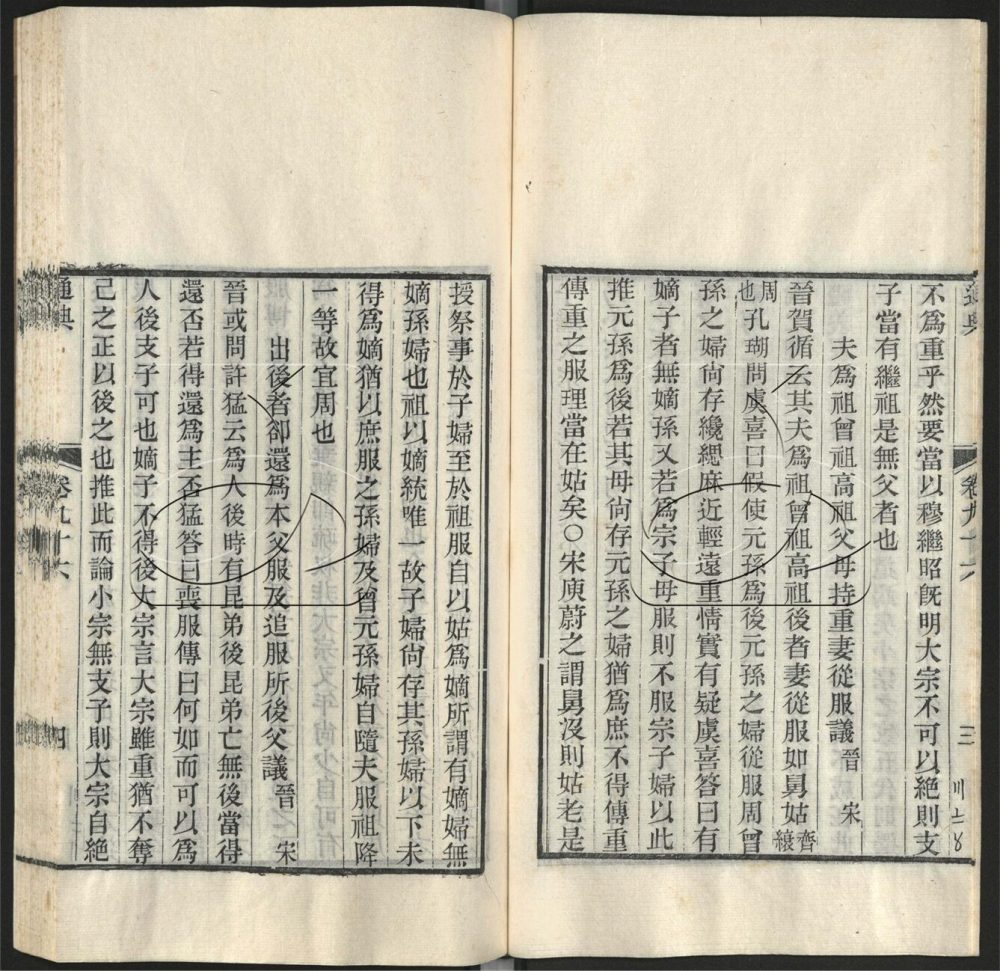 不爲重乎然要當以穆繼昭旣明大宗不可以絕則支
子當有繼祖是無父者也
夫爲祖曾祖高祖父母持重妻從服議 晉 宋
晉賀循云其夫爲祖曾祖高祖後者妻從服如舅姑齊縗
周也孔瑚問虞喜曰假使元孫爲後元孫之婦從服周曾
孫之婦尙存纔緦麻近輕遠重情實有疑虞喜答曰有
嫡子者無嫡孫又若爲宗子母服則不服宗子婦以此
推元孫爲後若其母尙存元孫之婦猶爲庶不得傳重
傳重之服理當在姑矣○宋庾蔚之謂舅沒則姑老是
通典 卷九十六 三
授祭事於子婦至於祖服自以姑爲嫡所謂有嫡婦無
嫡孫婦也祖以嫡統唯一故子婦尙存其孫婦以下未
得爲嫡猶以庶服之孫婦及曾元孫婦自隨夫服祖降
一等故宜周也
出後者卻還爲本父服及追服所後父議 晉 宋
晉或問許猛云爲人後時有昆弟後昆弟亡無後當得
還否若得還爲主否猛答曰喪服傳曰何如而可以爲
人後支子可也嫡子不得後大宗言大宗雖重猶不奪
己之正以後之也推此而論小宗無支子則大宗自絕
通典 卷九十六 四